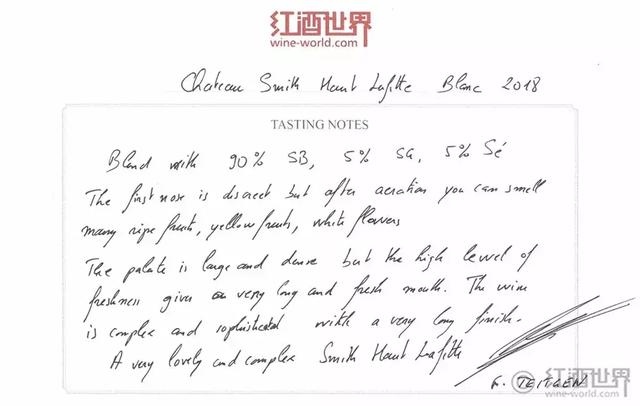 红酒世界
wine-world.com
Chateau Smith Haut Lafitte Blanc 2018
TASTING NOTES
Blend with 90% SB, 5% SG, 5% Sé
The first nose is discreet but after aeration you can smell
many ripe fruits, yellow fruits, white flowers
The palate is large and dense but the high level of
freshness given a very long and fresh mouth. The wine
is complex and sophisticated with a very long finish.
A very lovely and complex Smith Haut Lafitte
F. TEITGEN
红酒世界
wine-world.com